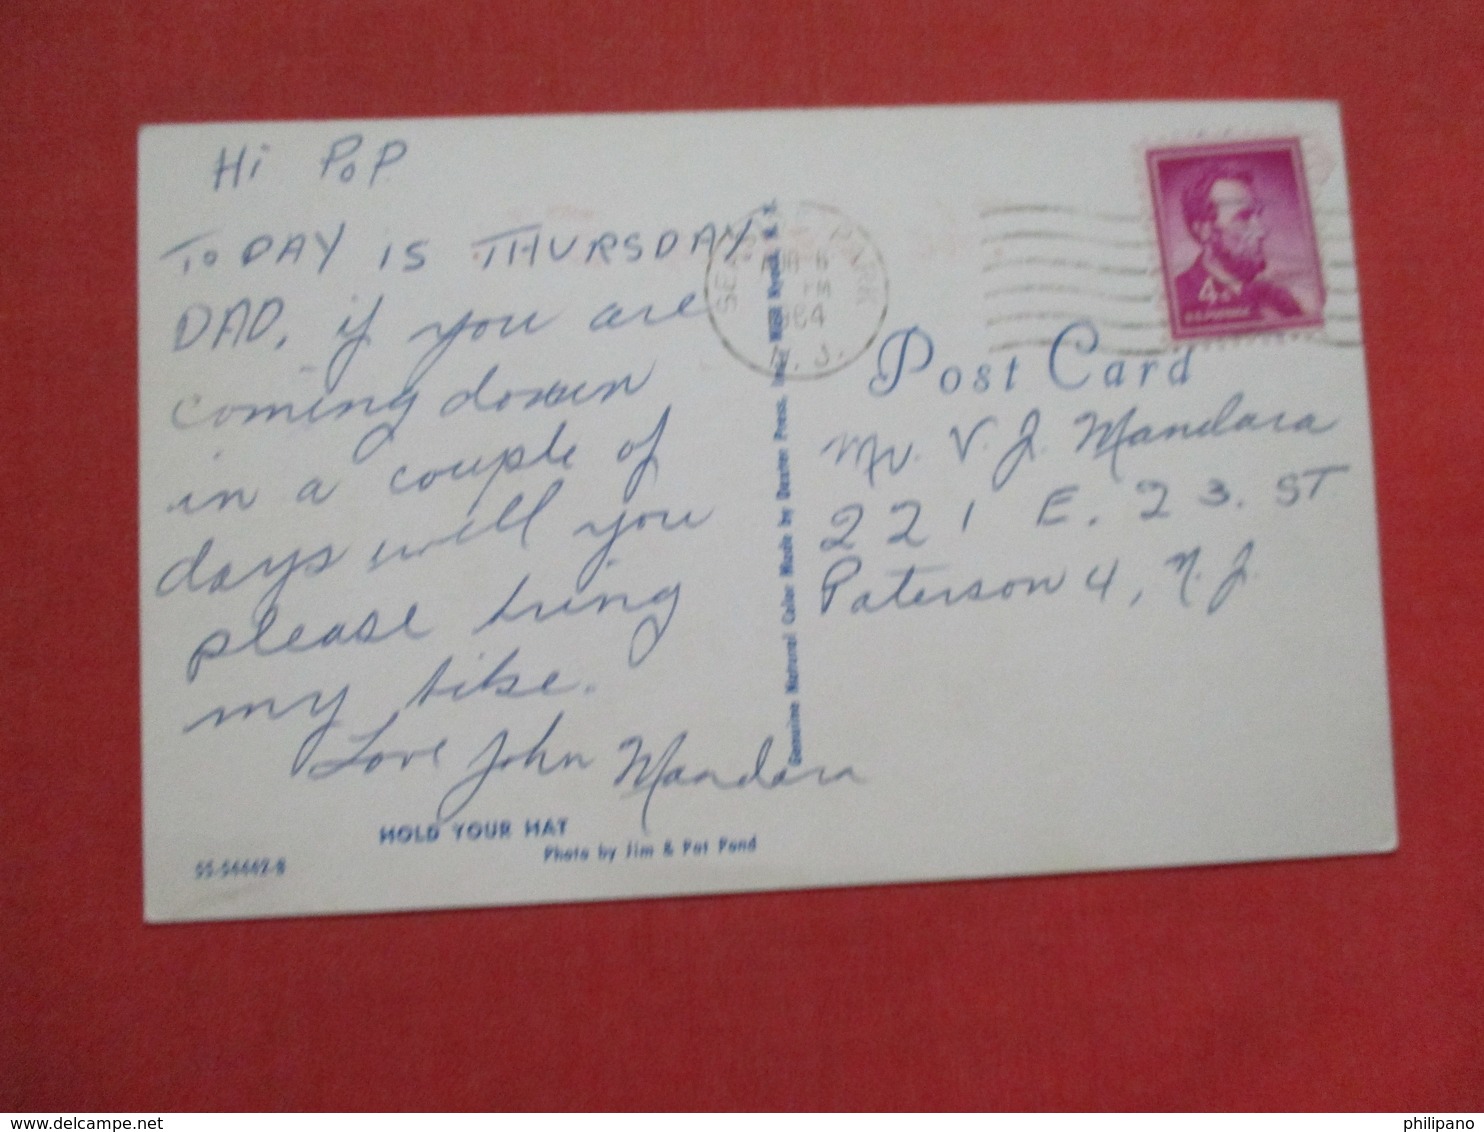 Hi PoP
ToDAY iS THURSDAY
DAD, if you are
coming down
in a couple of
days will you
please bring
my bike.
Love John Mandara
HOLD YOUR HAT
Photo by Jim & Pat Pond
55-54442-B
Genuine Natural Color Made by Dexter Press, Inc., West Nyack, N. Y.
SEASIDE PARK
AUG 6
PM
1964
N. J.
4¢
U.S. POSTAGE
Post Card
Mr. V. J. Mandara
221 E. 23. ST
Paterson 4, N. J.
www.delcampe.net
philipano